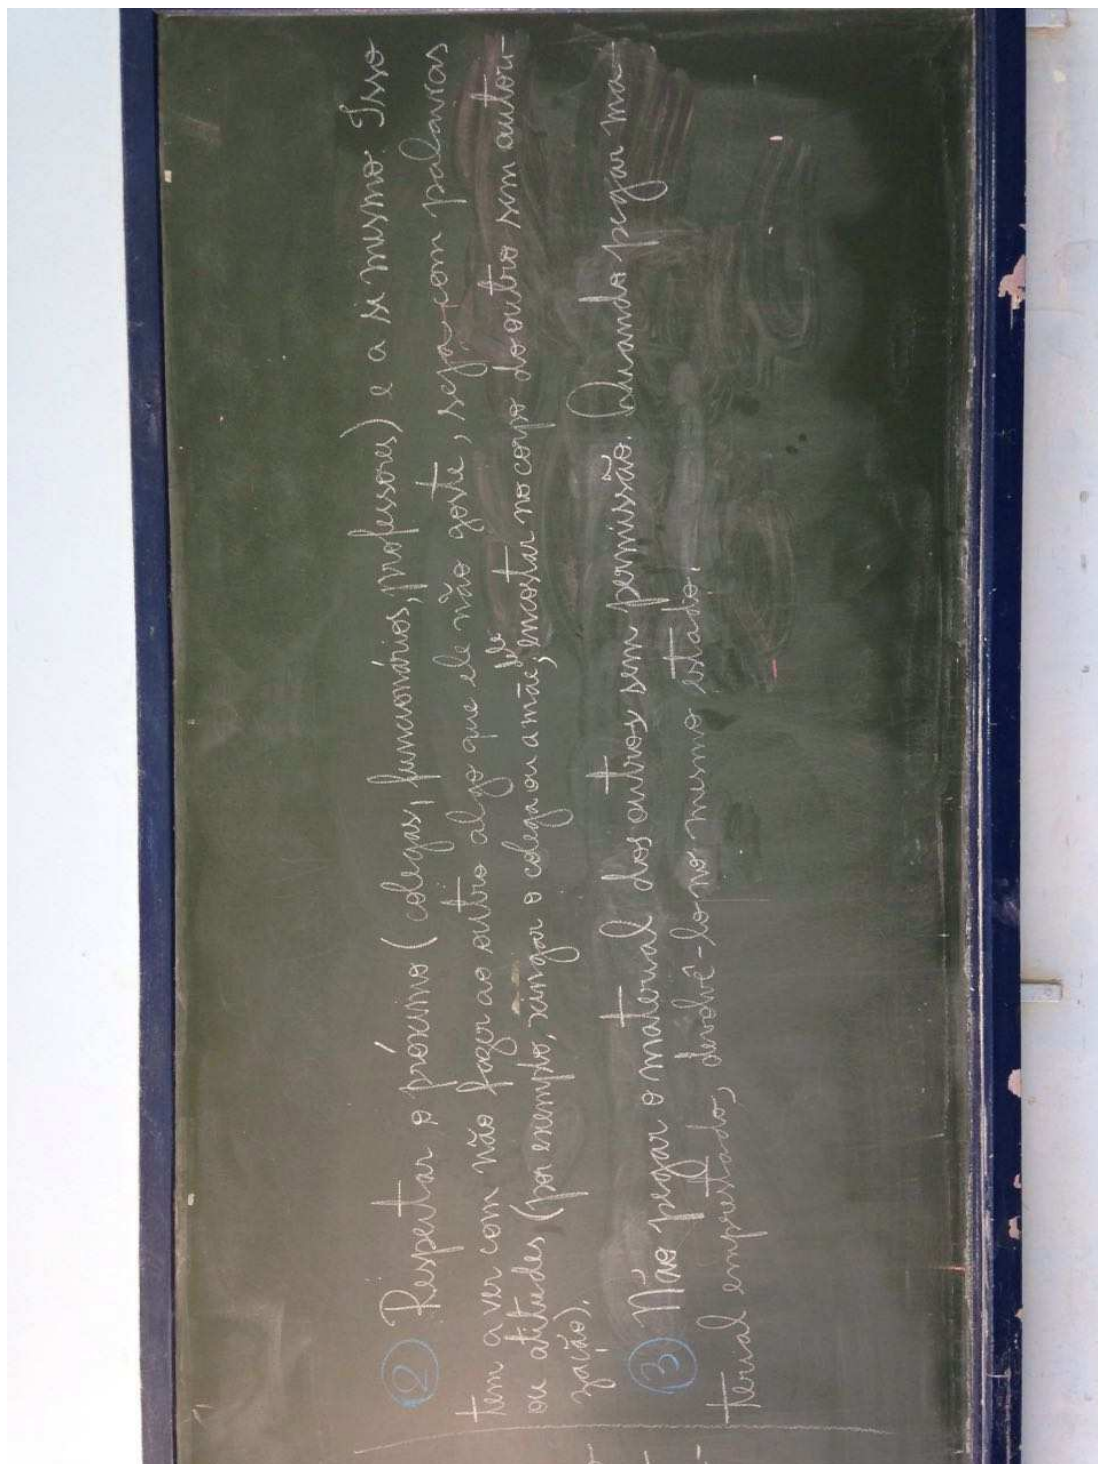 ② Respeitar o próximo (colegas, funcionários, professores) e a si mesmo. Isso
tem a ver com não fazer ao outro algo que ele não goste, seja com palavras
ou atitudes (por exemplo, xingar o colega ou a mãe dele, encostar no corpo do outro sem autori-
zação).
③ Não pegar o material dos outros sem permissão. Quando pegar ma-
terial emprestado, devolvê-lo no mesmo estado.